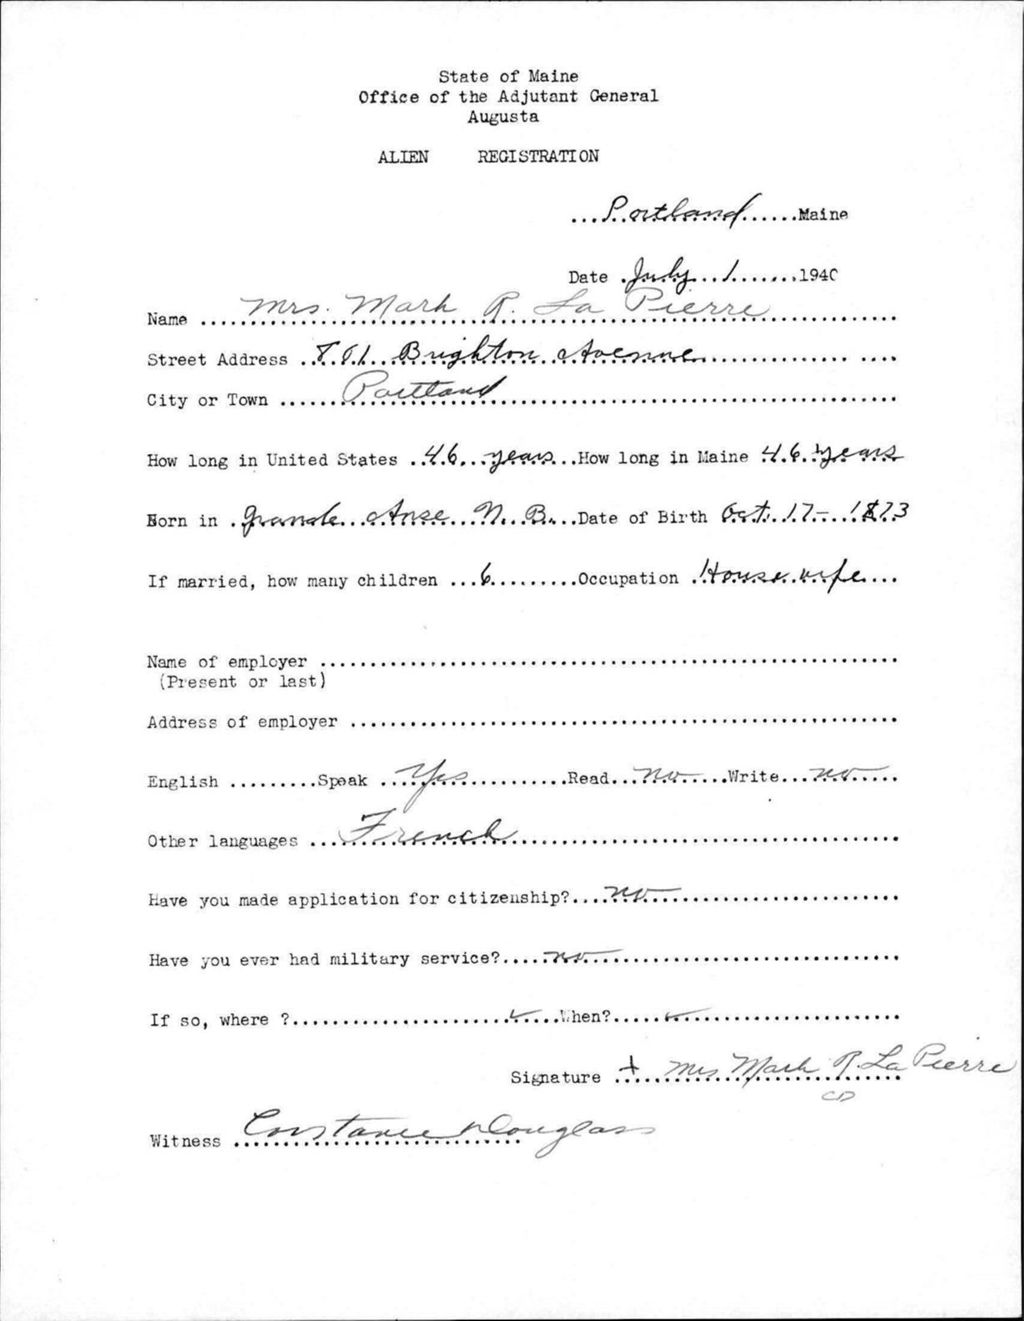 State of Maine
Office of the Adjutant General
Augusta
ALIEN REGISTRATION
...Portland......Maine
Date .July...1.......1940
Name ....Mrs. Mark R. La Pierre....
Street Address ..801 Brighton Avenue....
City or Town ......Portland....
How long in United States ..46...years...How long in Maine 46 years
Born in .Grande Anse N. B....Date of Birth Oct. 17 - 1873
If married, how many children ...6.........Occupation .Housewife....
Name of employer ....
(Present or last)
Address of employer ....
English .........Speak ...Yes...........Read...no......Write...no.....
Other languages ...French....
Have you made application for citizenship?....no....
Have you ever had military service?.....no....
If so, where ?......................✓....When?.....✓....
Signature + Mrs Mark R. La Pierre
CD
Witness Constance Douglass